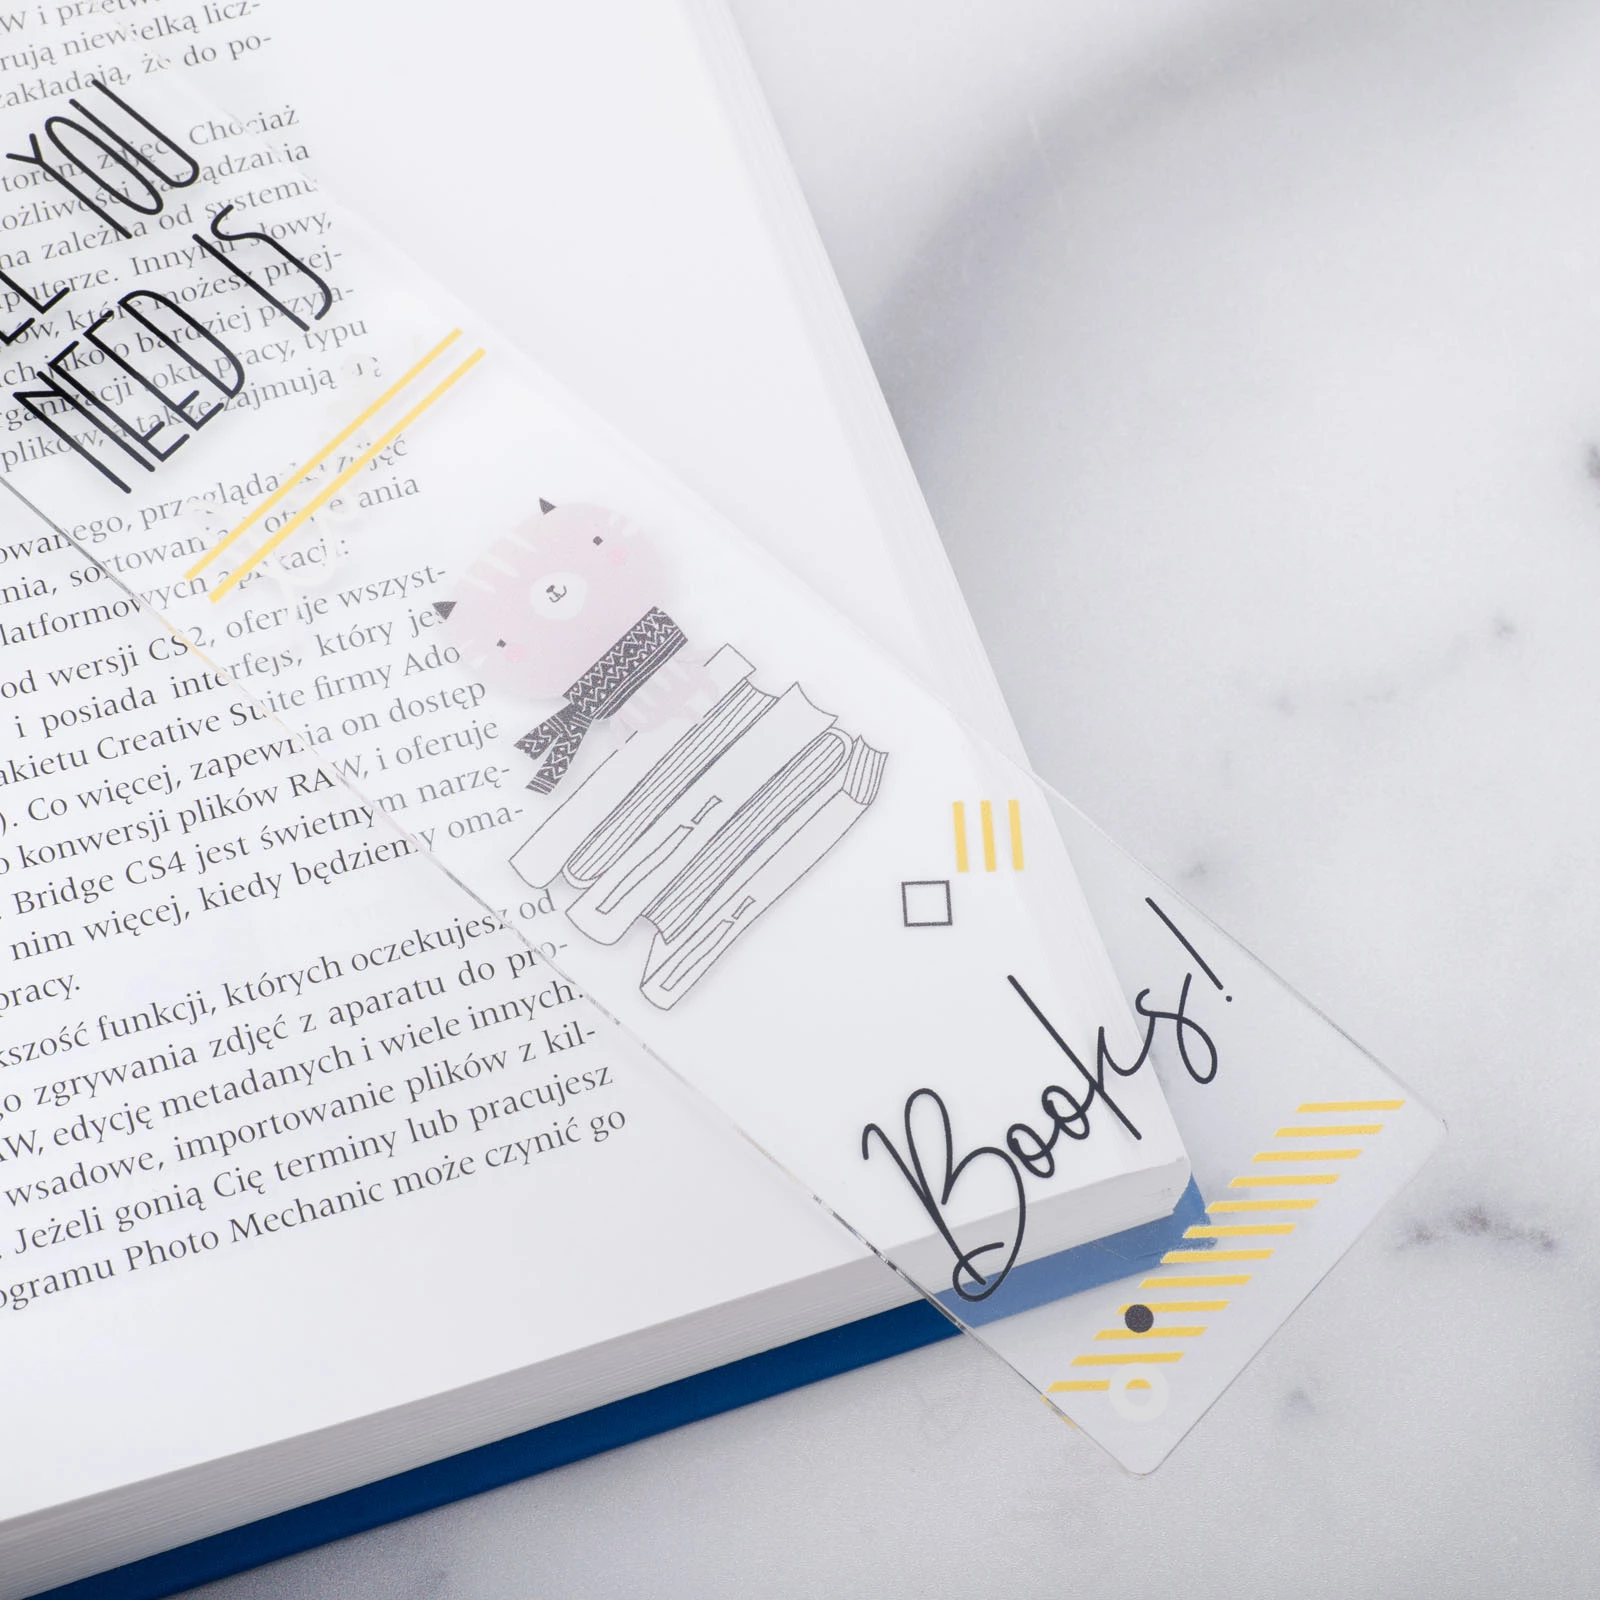 YOU
NEED IS
Books!
W i
rują niewielką licz-
zakładają, że do po-
Chociaż
zarządzania
na zależna od systemu
puterze. Innymi słowy,
ów, które możesz przej-
jako bardziej przyja-
toku pracy, typu
plików, a także zajmują
zdjęć
ania, sortowania
latformowych aplikacji:
od wersji CS2, oferuje wszyst-
i posiada interfejs, który jes
akietu Creative Suite firmy Ado
). Co więcej, zapewnia on dostęp
o konwersji plików RAW, i oferuje
. Bridge CS4 jest świetnym narzę-
nim więcej, kiedy będziemy oma-
pracy.
kszość funkcji, których oczekujesz od
go zgrywania zdjęć z aparatu do pro-
AW, edycję metadanych i wiele innych.
wsadowe, importowanie plików z kil-
. Jeżeli gonią Cię terminy lub pracujesz
ogramu Photo Mechanic może czynić go